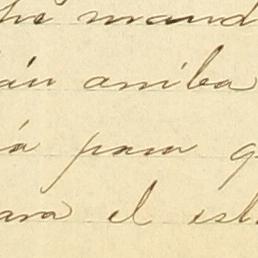 he mand
án arriba
ía para q
ara el est